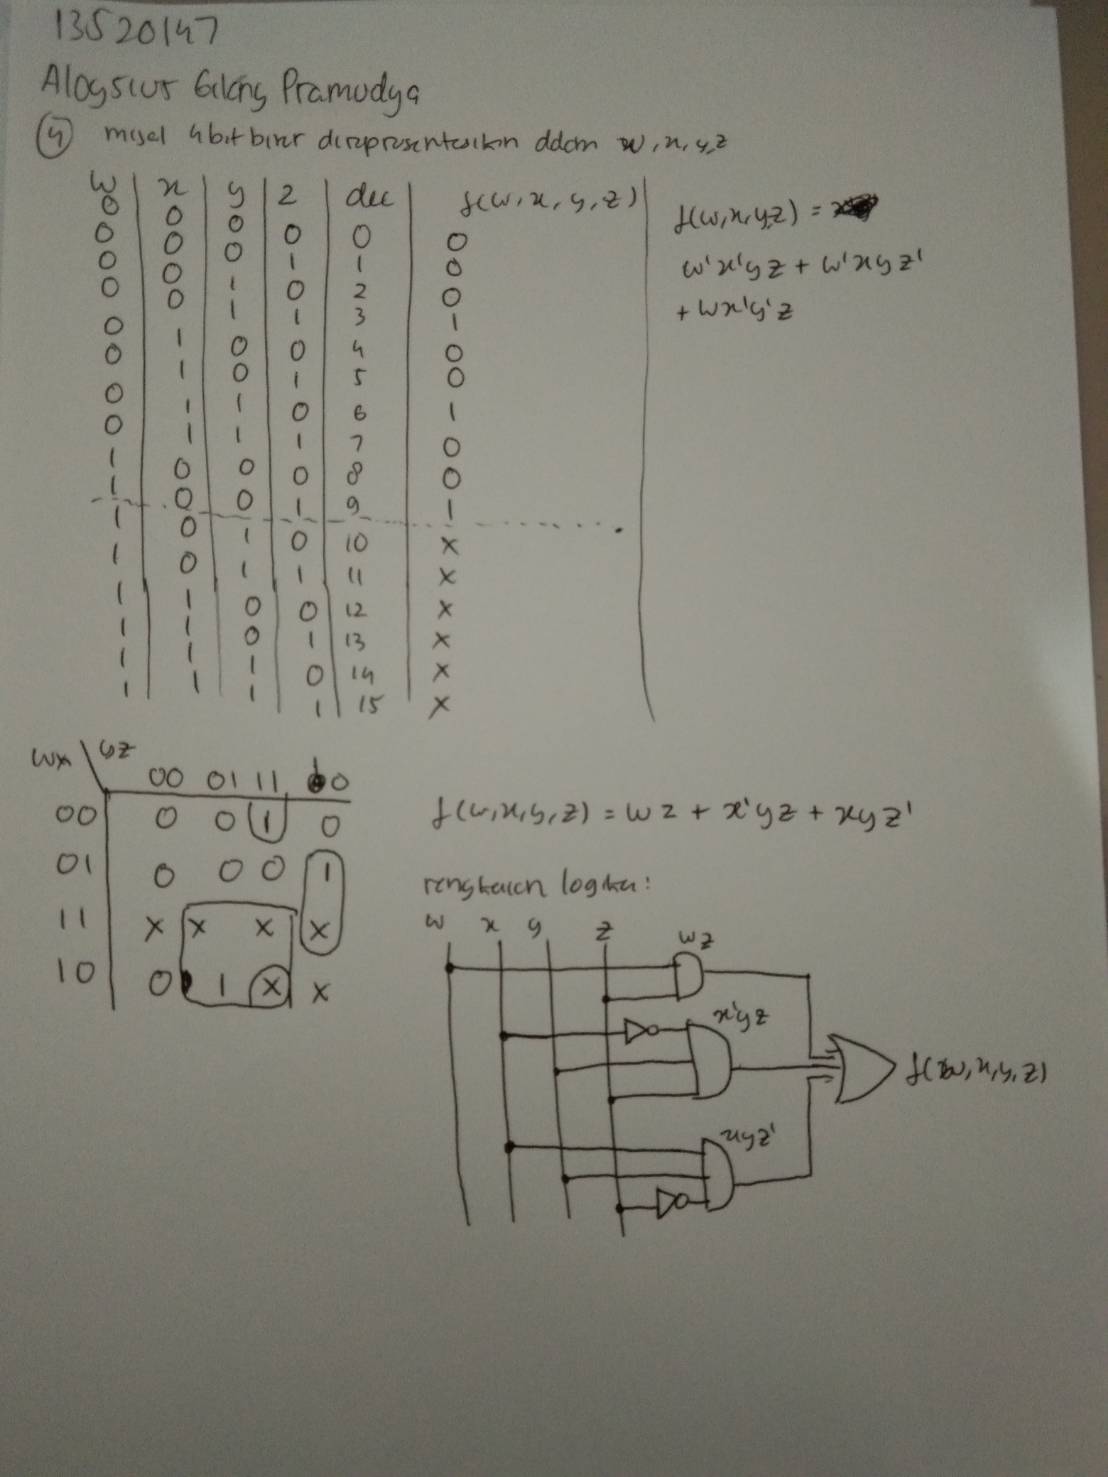 13520147
Aloysius Gilang Pramudya
④ misal 4 bit biner direpresentasikan dalam w, x, y, z
w | x | y | z | dec | f(w, x, y, z)
0 | 0 | 0 | 0 | 0 | 0
0 | 0 | 0 | 1 | 1 | 0
0 | 0 | 1 | 0 | 2 | 0
0 | 0 | 1 | 1 | 3 | 1
0 | 1 | 0 | 0 | 4 | 0
0 | 1 | 0 | 1 | 5 | 0
0 | 1 | 1 | 0 | 6 | 1
0 | 1 | 1 | 1 | 7 | 0
1 | 0 | 0 | 0 | 8 | 0
1 | 0 | 0 | 1 | 9 | 1
1 | 0 | 1 | 0 | 10 | x
1 | 0 | 1 | 1 | 11 | x
1 | 1 | 0 | 0 | 12 | x
1 | 1 | 0 | 1 | 13 | x
1 | 1 | 1 | 0 | 14 | x
1 | 1 | 1 | 1 | 15 | x
f(w,x,y,z) =
w'x'yz + w'xyz'
+ wx'y'z
wx \ yz
00 01 11 10
00 0 0 1 0
01 0 0 0 1
11 x x x x
10 0 1 x x
f(w,x,y,z) = wz + x'yz + xyz'
rangkaian logika:
w x y z
wz
x'yz
xyz'
f(w,x,y,z)